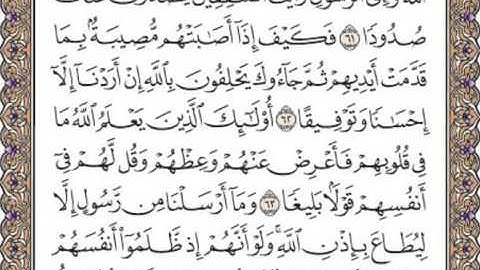 صُدُودًا ٦١ فَكَيْفَ إِذَآ أَصَٰبَتْهُم مُّصِيبَةُۢ بِمَا
قَدَّمَتْ أَيْدِيهِمْ ثُمَّ جَآءُوكَ يَحْلِفُونَ بِٱللَّهِ إِنْ أَرَدْنَآ إِلَّآ
إِحْسَٰنًا وَتَوْفِيقًا ٦٢ أُو۟لَٰٓئِكَ ٱلَّذِينَ يَعْلَمُ ٱللَّهُ مَا
فِى قُلُوبِهِمْ فَأَعْرِضْ عَنْهُمْ وَعِظْهُمْ وَقُل لَّهُمْ فِىٓ
أَنفُسِهِمْ قَوْلًۢا بَلِيغًا ٦٣ وَمَآ أَرْسَلْنَا مِن رَّسُولٍ إِلَّا
لِيُطَاعَ بِإِذْنِ ٱللَّهِ ۚ وَلَوْ أَنَّهُمْ إِذ ظَّلَمُوٓا۟ أَنفُسَهُمْ